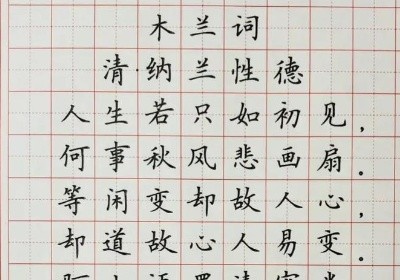 木兰词
清·纳兰性德
人生若只如初见，
何事秋风悲画扇。
等闲变却故人心，
却道故心人易变。